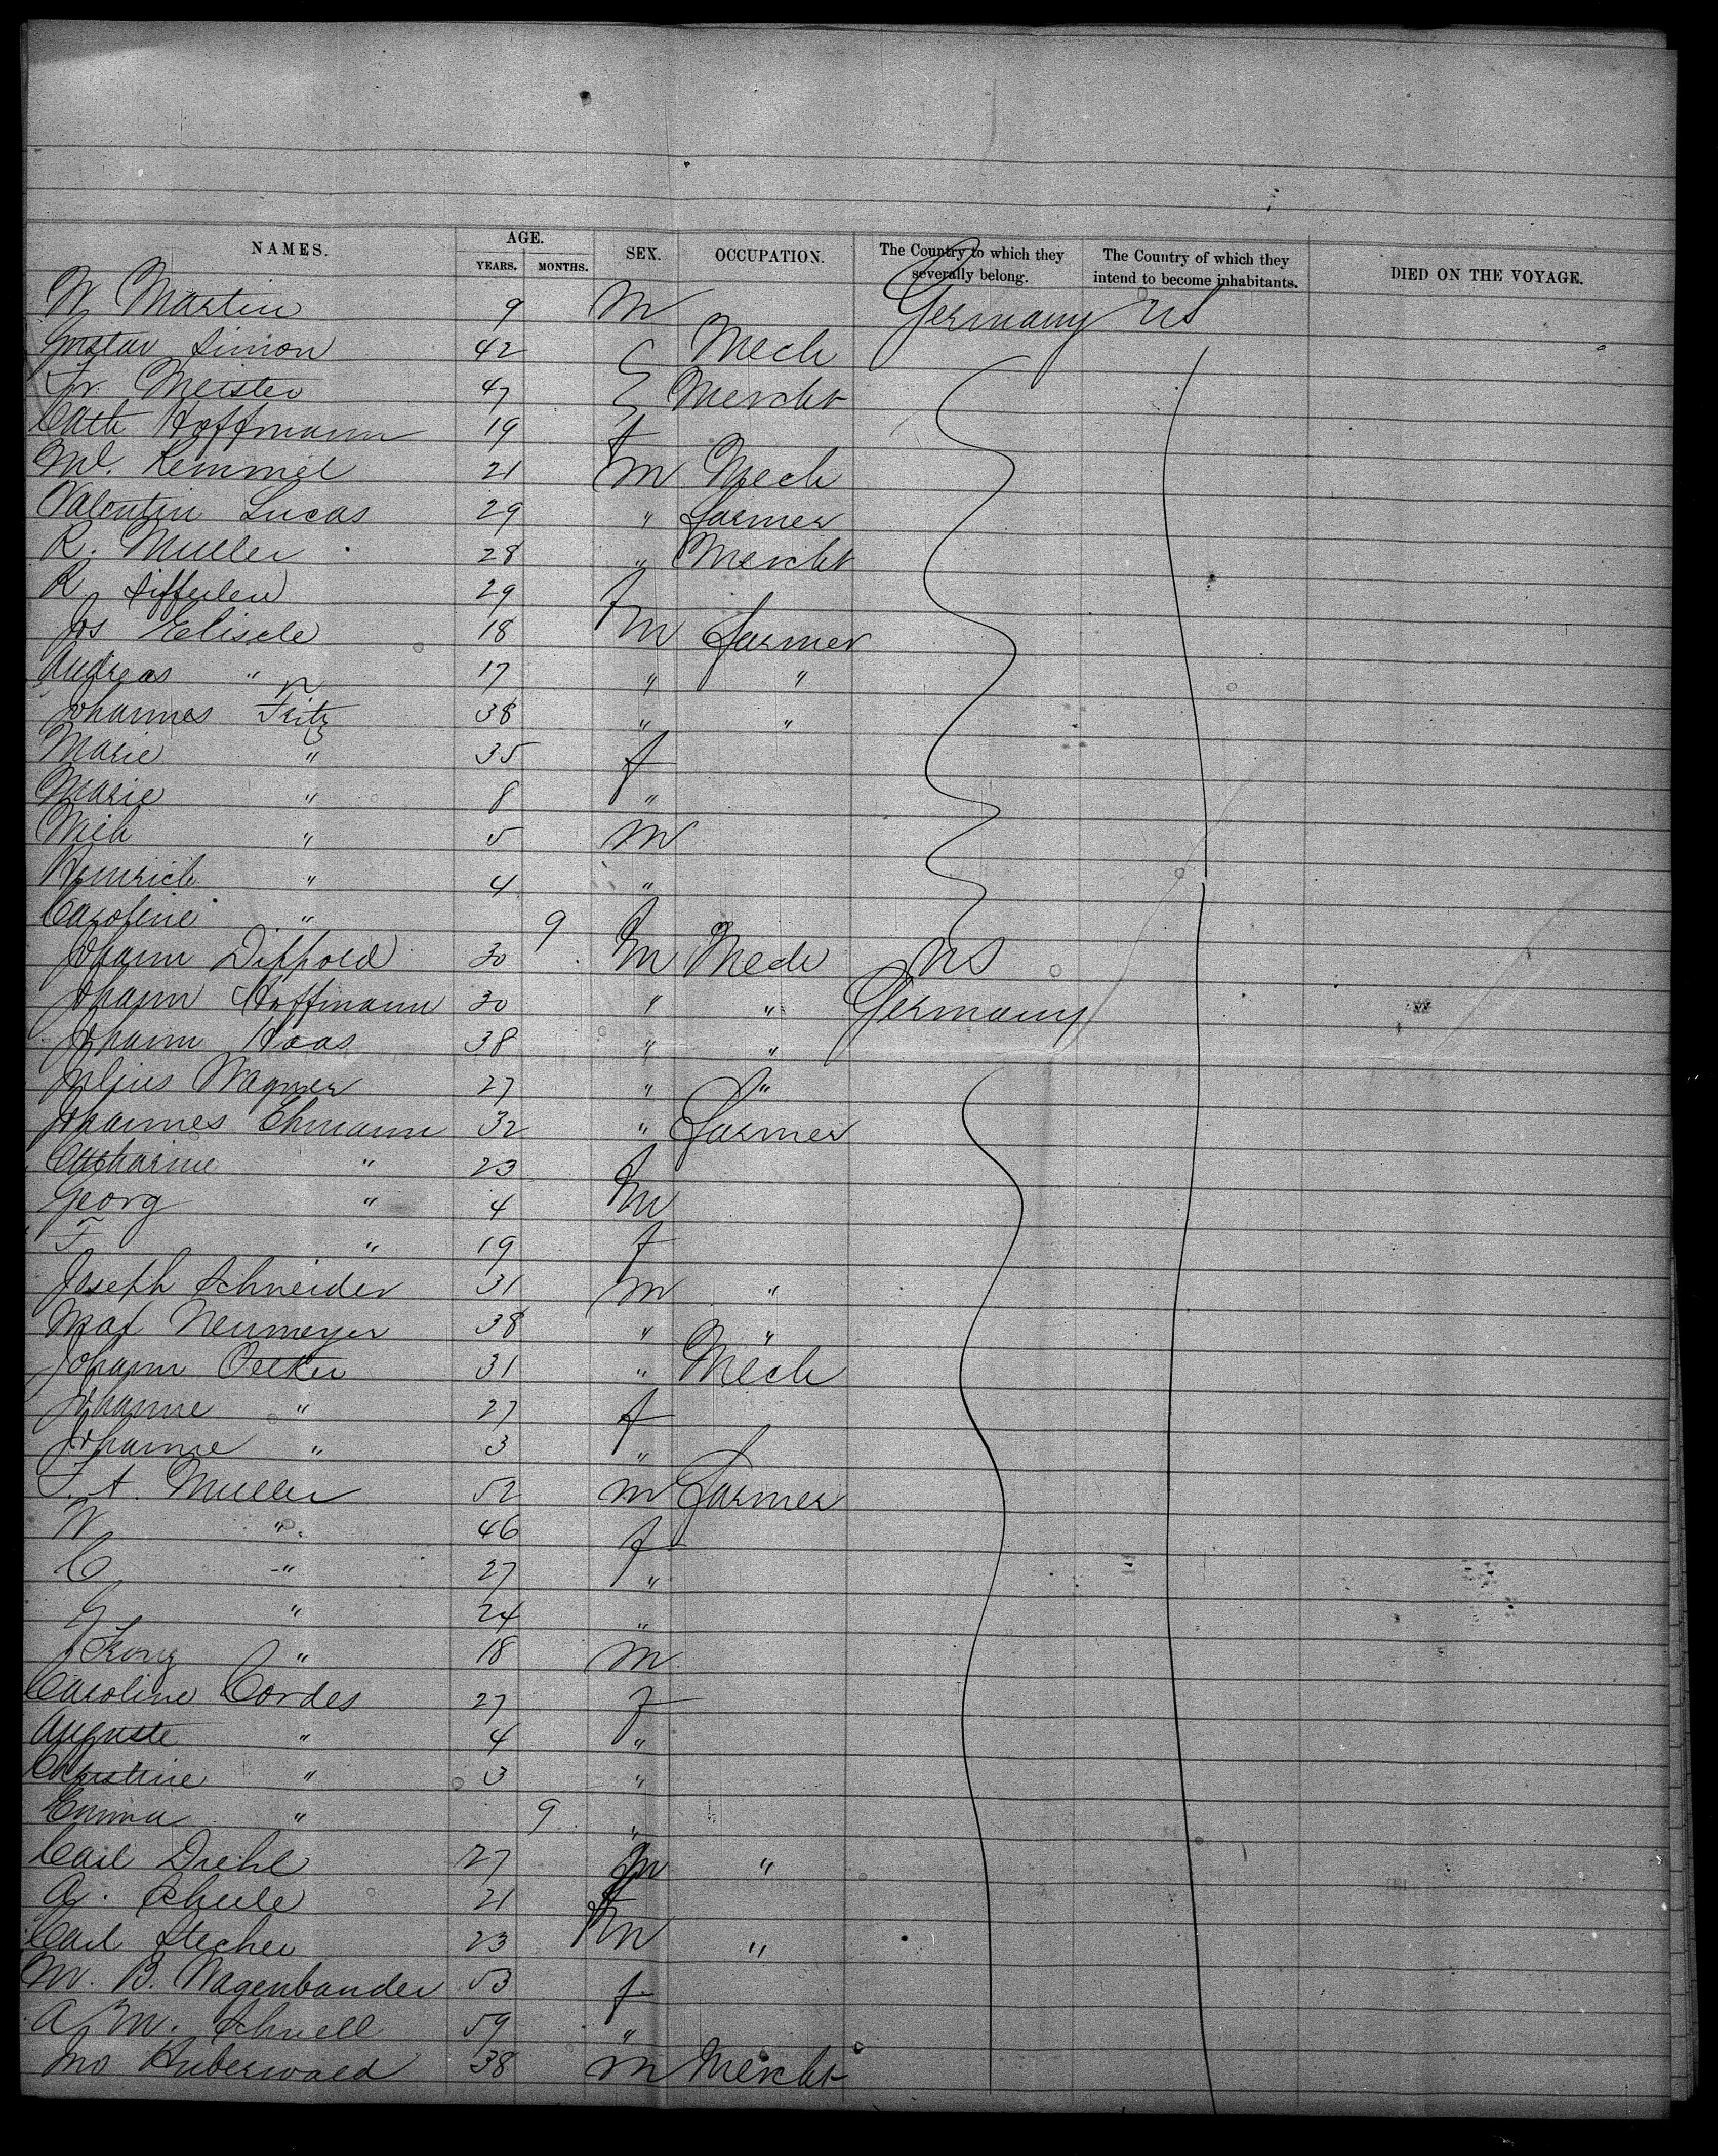 NAMES. AGE. YEARS. MONTHS. SEX. OCCUPATION. The Country to which they severally belong. The Country of which they intend to become inhabitants. DIED ON THE VOYAGE.
W Martin 9 m Germany US
Gustav Simon 42 Mech
Fr. Meister 47 Mercht
Cath Hoffmann 19 f
Ml. Kemmel 21 m Mech
Valentin Lucas 29 " farmer
R. Muller 28 " Mercht
R 29 f
Jos Elisele 18 m farmer
Andreas " 17 " "
Johannes Fritz 38 " "
Marie " 35 f
Marie " 8 "
Mich " 5 m
Heinrich " 4 "
Caroline " 9 f
Johann Dippold 30 m Mech US
Johann Hoffmann 30 " " Germany
Johann Haas 38 " "
Julius Wagner 27 " "
Johannes Ehmann 32 " farmer
Catharine " 23 f
Georg " 4 m
F " 19 f
Joseph Schneider 31 m "
Max Neumeyer 38 " "
Johann Oelker 31 " Mech
Johanne " 27 f
Johanne " 3 "
F. A. Muller 52 m farmer
W " 46 f
C " 27 "
G " 24 "
" 18 m
Caroline Cordes 27 f
Auguste " 4 "
Christine " 3 "
Emma " 9 "
Carl Diehl 27 m "
A. Schule 21 f
Carl Stecher 23 m "
M. B. Wagenbander 53 f
A M. Schnell 59 "
Mo Huberwald 38 m Mercht